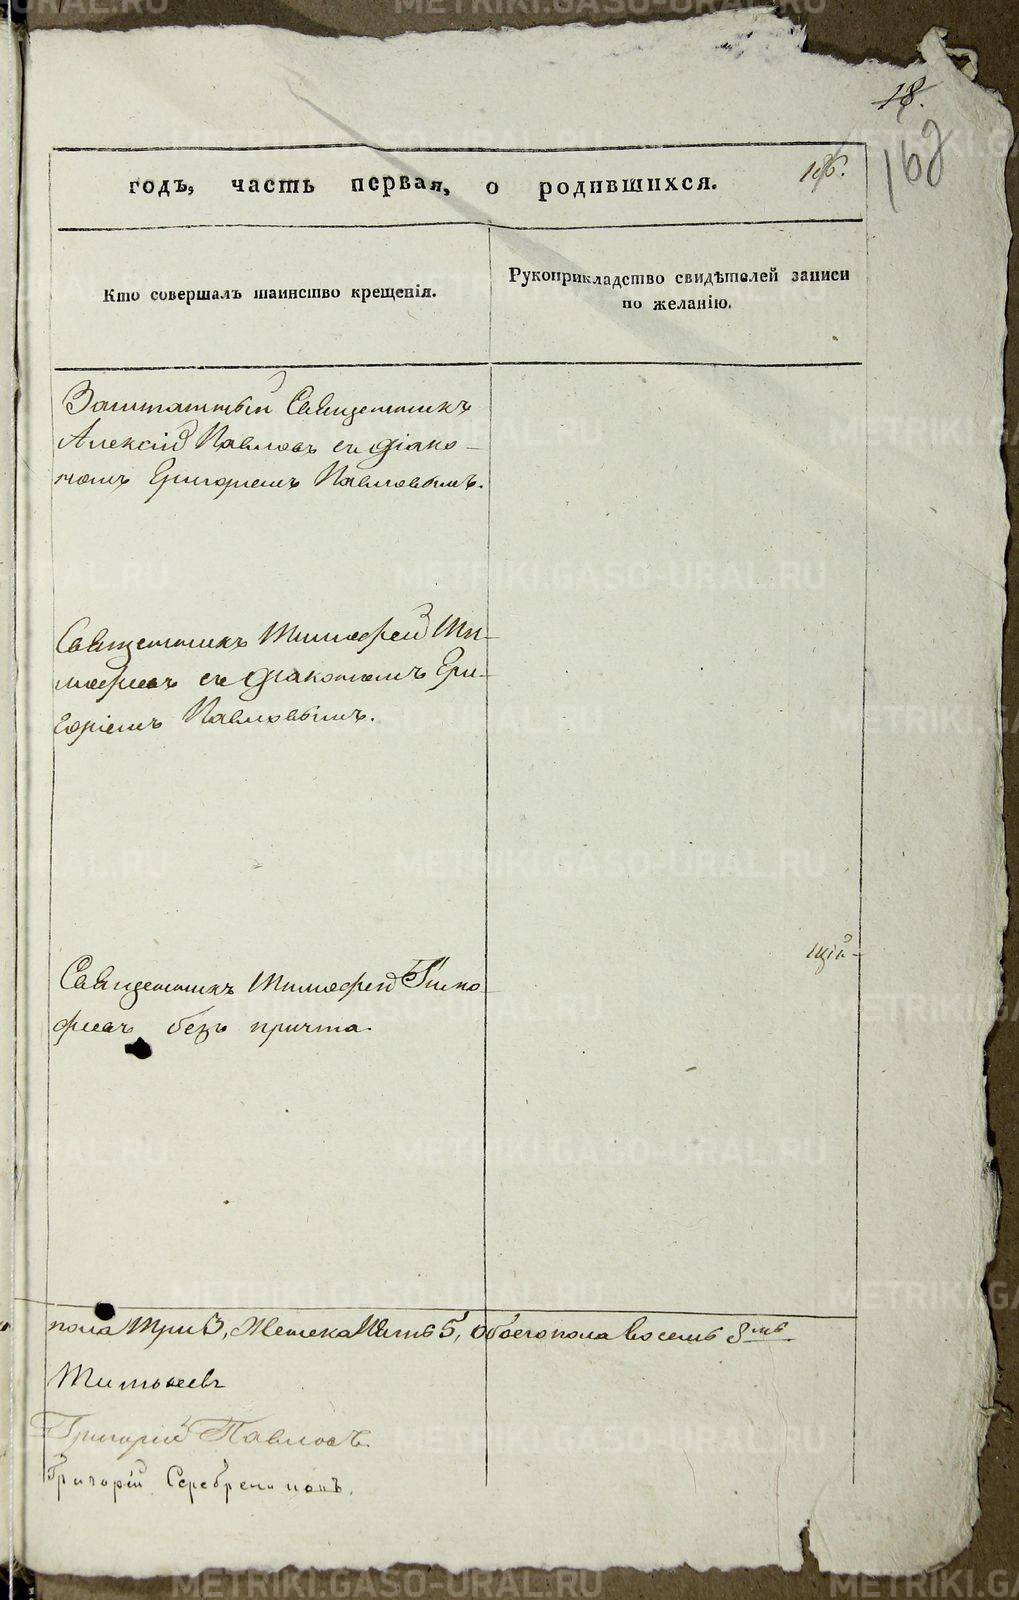 18.
168
годъ, часть первая, о родившихся.
Кто совершалъ таинство крещенія.
Рукоприкладство свидѣтелей записи
по желанію.
Заштатный Священникъ
Алексій Павловъ съ діако-
номъ Григориемъ Павловымъ.
Священникъ Тимофей Ти-
мофеевъ съ діакономъ Гри-
горіемъ Павловымъ.
щій-
Священникъ Тимофей
безъ причта.
пола Три 3, Женска Пять 5, Обоего пола восемь 8мь
Григорій Павловъ.
Григорій Серебрениковъ.
METRIKI.GASO-URAL.RU